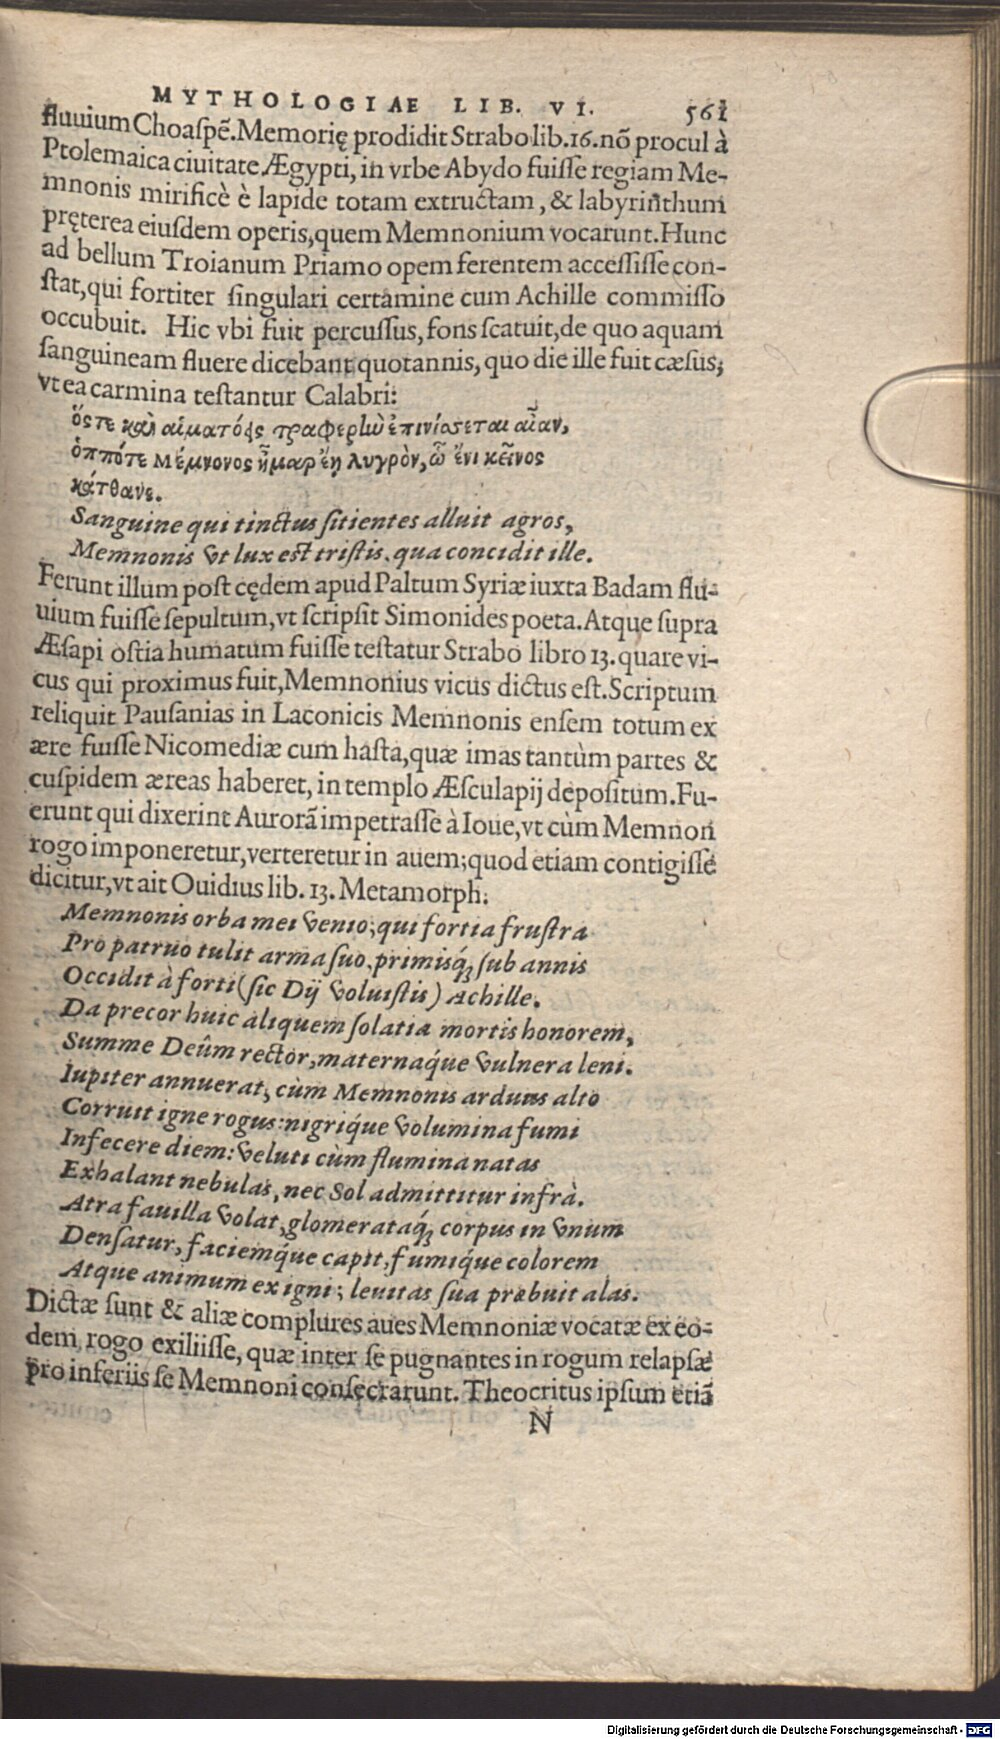 MYTHOLOGIAE LIB. VI. 561
fluuium Choaſpẽ. Memorię prodidit Strabo lib. 16. nõ procul à
Ptolemaica ciuitate Ægypti, in vrbe Abydo fuiſſe regiam Me-
mnonis mirificè è lapide totam extructam, & labyrinthum
pręterea eiuſdem operis, quem Memnonium vocarunt. Hunc
ad bellum Troianum Priamo opem ferentem acceſſiſſe con-
ſtat, qui fortiter ſingulari certamine cum Achille commiſſo
occubuit. Hic vbi fuit percuſſus, fons ſcatuit, de quo aquam
ſanguineam fluere dicebant quotannis, quo die ille fuit cæſus,
vt ea carmina teſtantur Calabri:
ὅς τε καὶ αἱματόεις τραφερὴν ἐπινίσσεται αἶαν,
ὁππότε Μέμνονος ἦμαρ ἔῃ λυγρὸν, ᾧ ἔνι κεῖνος
κάτθανε.
Sanguine qui tinctus ſitientes alluit agros,
Memnonis vt lux est triſtis, qua concidit ille.
Ferunt illum poſt cędem apud Paltum Syriæ iuxta Badam flu-
uium fuiſſe ſepultum, vt ſcripſit Simonides poeta. Atque ſupra
Æſapi oſtia humatum fuiſſe teſtatur Strabo libro 13. quare vi-
cus qui proximus fuit, Memnonius vicus dictus eſt. Scriptum
reliquit Pauſanias in Laconicis Memnonis enſem totum ex
ære fuiſſe Nicomediæ cum haſta, quæ imas tantùm partes &
cuſpidem æreas haberet, in templo Æſculapij depoſitum. Fu-
erunt qui dixerint Aurorã impetraſſe à Ioue, vt cùm Memnon
rogo imponeretur, verteretur in auem; quod etiam contigiſſe
dicitur, vt ait Ouidius lib. 13. Metamorph.
Memnonis orba mei venio; qui fortia fruſtra
Pro patruo tulit arma ſuo, primisq́; ſub annis
Occidit à forti (ſic Dij voluiſtis) Achille.
Da precor huic aliquem ſolatia mortis honorem,
Summe Deûm rector, maternaq́ue vulnera leni.
Iupiter annuerat, cùm Memnonis arduus alto
Corruit igne rogus: nigriq́ue volumina fumi
Infecere diem: veluti cùm flumina natas
Exhalant nebulas, nec Sol admittitur infrà.
Atra fauilla volat, glomerataq́; corpus in vnum
Denſatur, faciemq́ue capit, fumiq́ue colorem
Atque animum ex igni; leuitas ſua præbuit alas.
Dictæ ſunt & aliæ complures aues Memnoniæ vocatæ ex eo-
dem rogo exiliiſſe, quæ inter ſe pugnantes in rogum relapſæ
pro inferiis ſe Memnoni conſecrarunt. Theocritus ipſum etiã
N
Digitalisierung gefördert durch die Deutsche Forschungsgemeinschaft - DFG